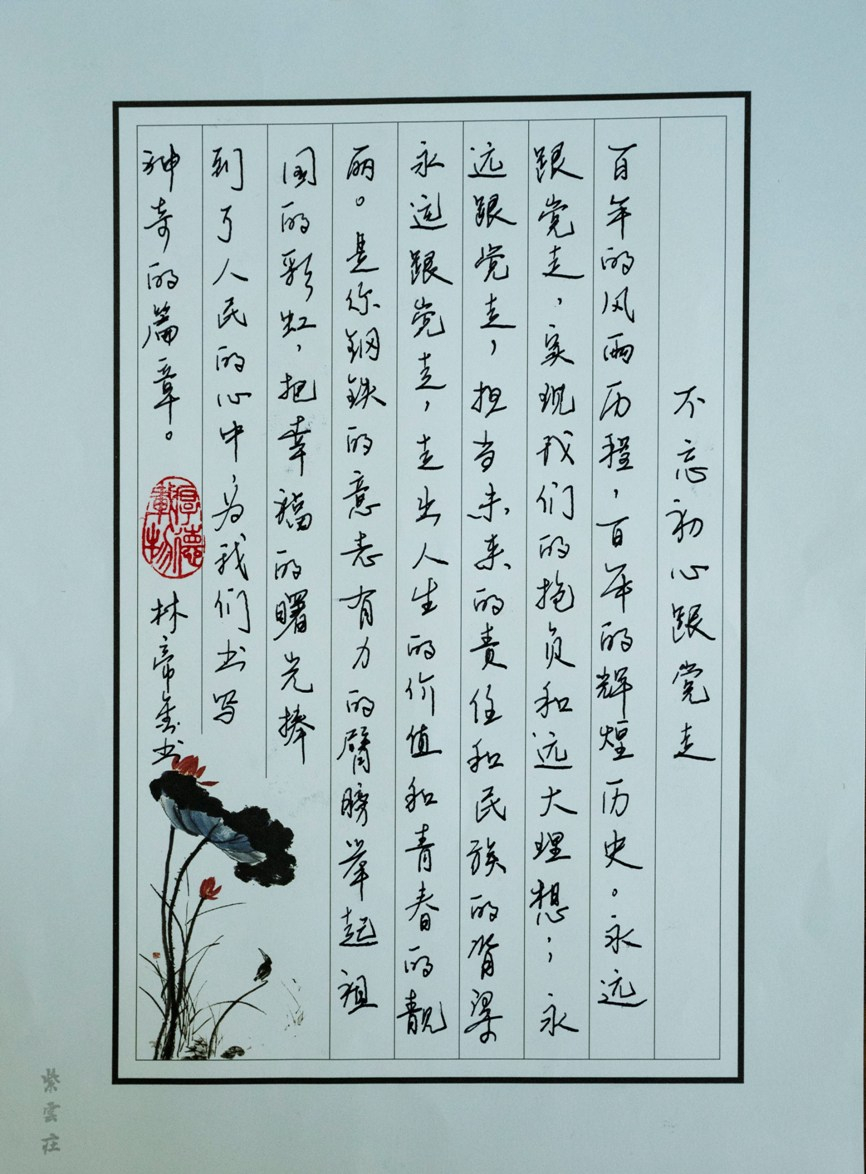 不忘初心跟党走
百年的风雨历程，百年的辉煌历史。永远
跟党走，实现我们的抱负和远大理想；永
远跟党走，担当未来的责任和民族的脊梁
永远跟党走，走出人生的价值和青春的靓
丽。是你钢铁的意志有力的臂膀举起祖
国的彩虹，把幸福的曙光捧
到了人民的心中，为我们书写
神奇的篇章。
厚德载物
林帝金书
紫雲莊